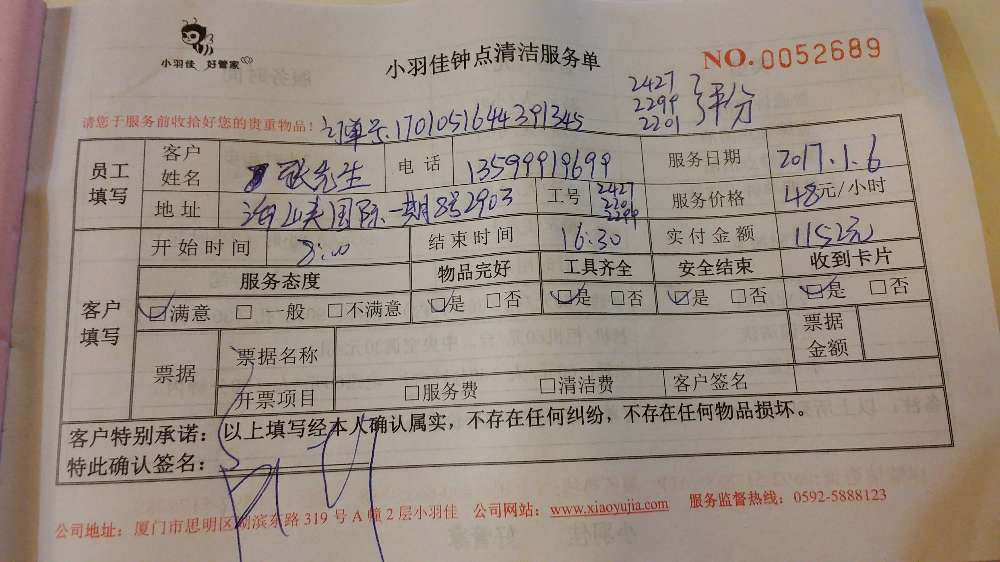 小羽佳 好管家
小羽佳钟点清洁服务单
NO.0052689
请您于服务前收拾好您的贵重物品！
订单号:1701051644391345
2427
2299
2201
评分
员工填写
客户姓名 张先生 电话 13599919699 服务日期 2017.1.6
地址 海峡国际一期8号2903 工号 2427 2201 2299 服务价格 48元/小时
客户填写
开始时间 8:00 结束时间 16:30 实付金额 1152元
服务态度 物品完好 工具齐全 安全结束 收到卡片
☑满意 □一般 □不满意 ☑是 □否 ☑是 □否 ☑是 □否 ☑是 □否
票据 票据名称 票据金额
开票项目 □服务费 □清洁费 客户签名
客户特别承诺：以上填写经本人确认属实，不存在任何纠纷，不存在任何物品损坏。
特此确认签名：
公司地址：厦门市思明区湖滨东路 319 号 A 幢 2 层小羽佳 公司网站：www.xiaoyujia.com 服务监督热线：0592-5888123